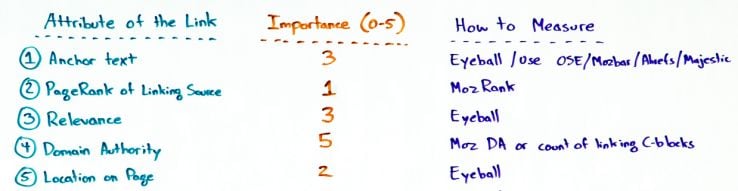 Attribute of the Link Importance (0-5) How to Measure
1 Anchor text 3 Eyeball / Use OSE/Mozbar/Ahrefs/Majestic
2 PageRank of Linking Source 1 MozRank
3 Relevance 3 Eyeball
4 Domain Authority 5 Moz DA or count of linking C-blocks
5 Location on Page 2 Eyeball